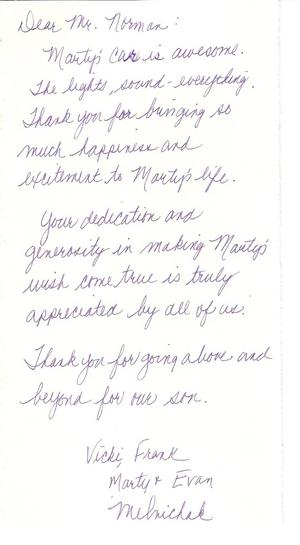 Dear Mr. Norman:
Marty's car is awesome.
The lights, sound - everything.
Thank you for bringing so
much happiness and
excitement to Marty's life.
Your dedication and
generosity in making Marty's
wish come true is truly
appreciated by all of us.
Thank you for going above and
beyond for our son.
Vicki, Frank
Marty & Evan
Melnichak